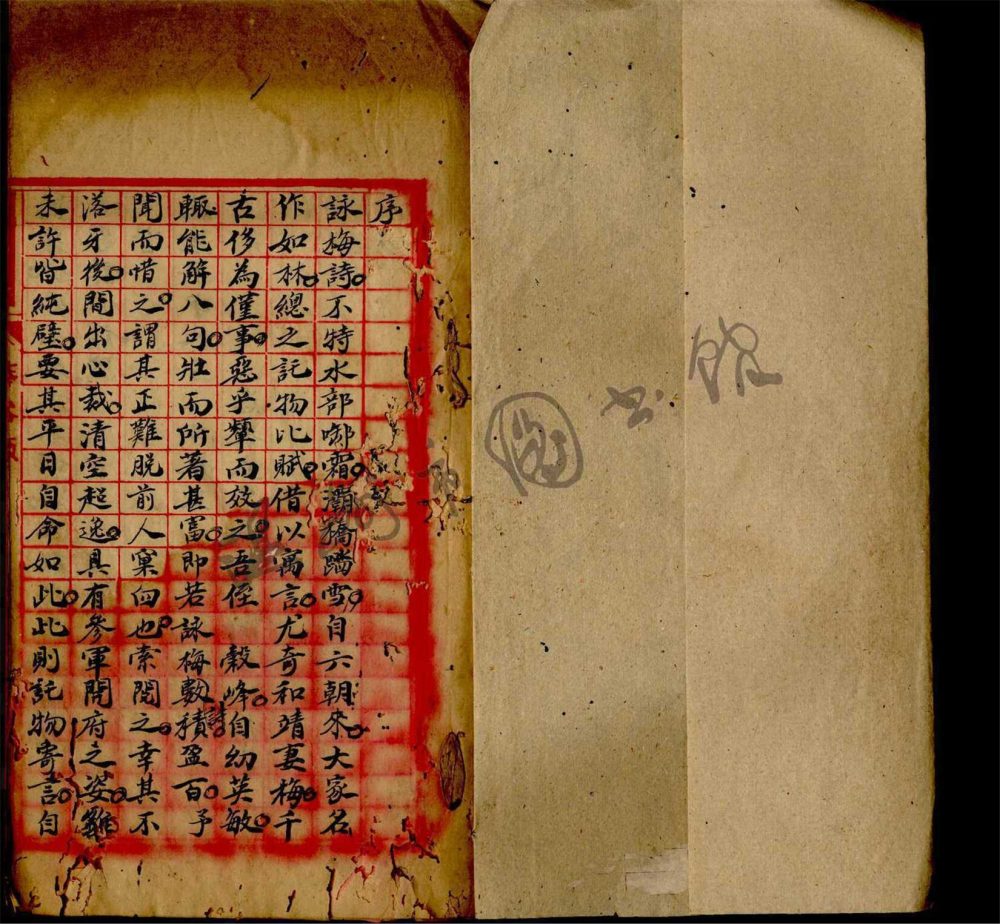 序
詠梅詩。不特水部啣霜。灞橋踏雪。自六朝來。大家名
作如林。總之託物比賦。借以寓言。尤奇和靖妻梅。千
古侈為僅事。惡乎顰而效之。吾侄 穀峰。自幼英敏。
輒能解八句。壯而所著甚富。即若詠梅數積盈百。予
聞而惜之。謂其正難脫前人窠臼也。索閱之。幸其不
落牙後。間出心裁。清空超逸。具有參軍開府之姿。雖
未許皆純璧。要其平日自命如此。此則託物寄言。自
圖書館